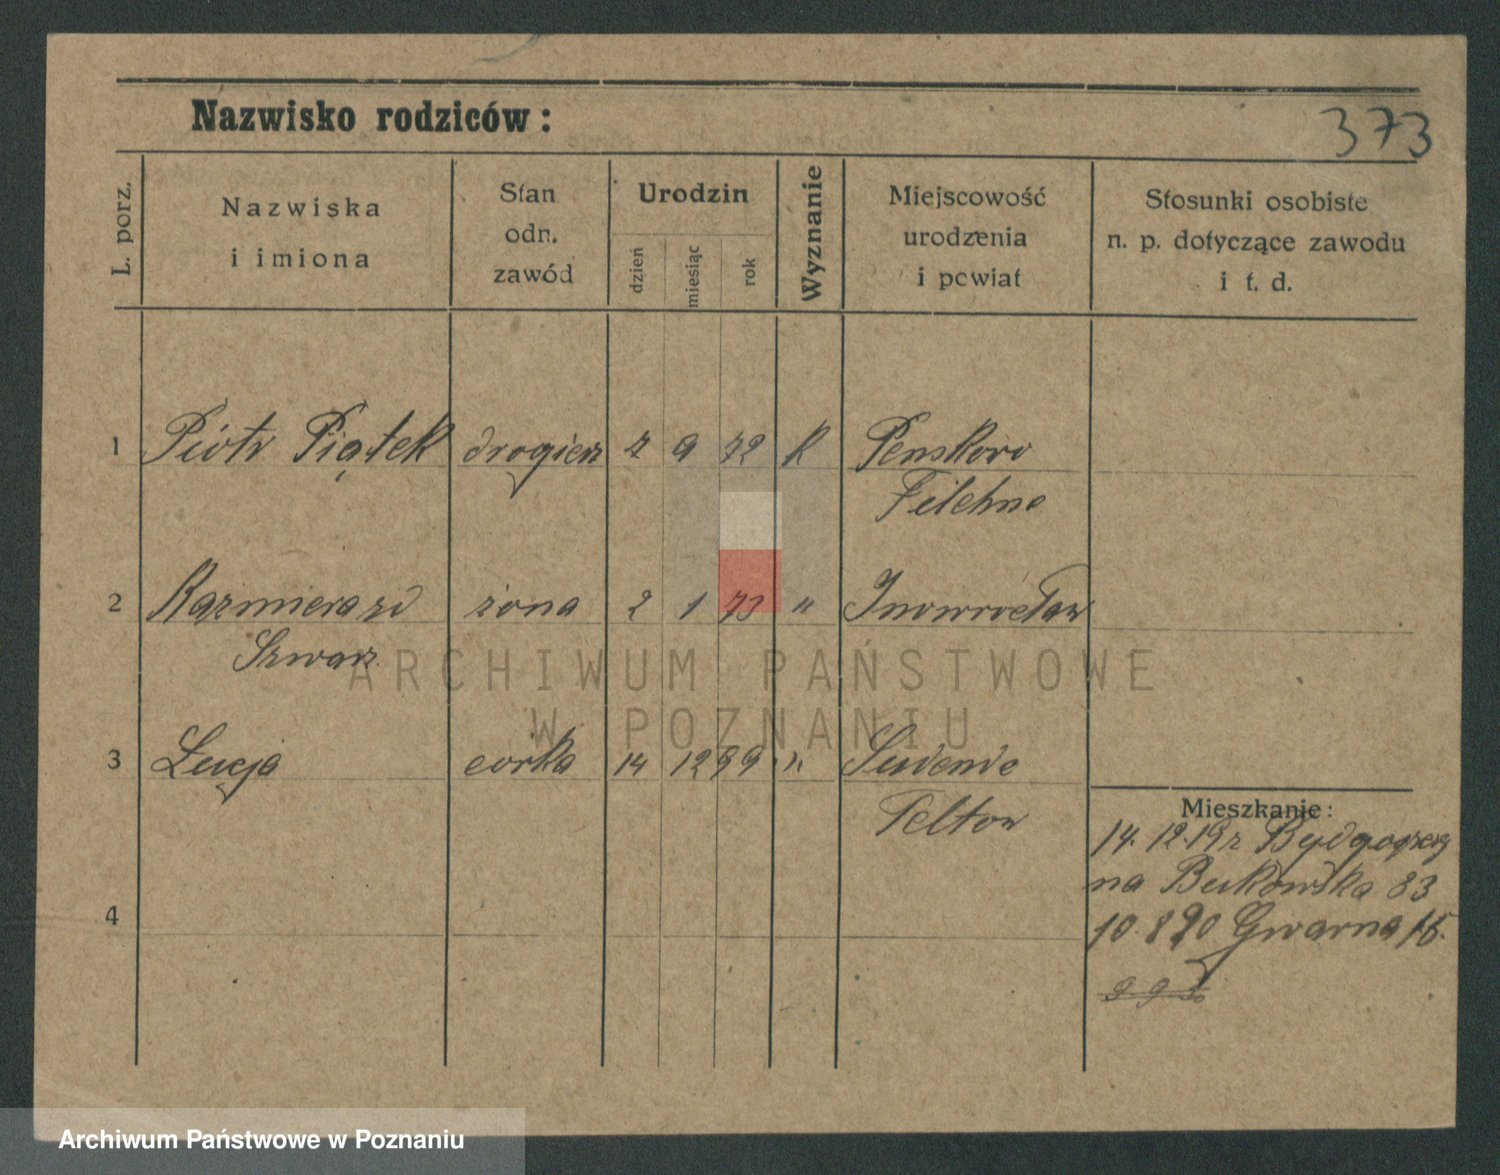 Nazwisko rodziców:
373
L. porz.
Nazwiska
i imiona
Stan
odn.
zawód
Urodzin
dzień
miesiąc
rok
Wyznanie
Miejscowość
urodzenia
i powiat
Stosunki osobiste
n. p. dotyczące zawodu
i t. d.
1 Piotr Piątek 9 72 k Penskowo
Filehne
2 żona 2 1 73 " Inowrocław
Szwarz
ARCHIWUM PAŃSTWOWE
W POZNANIU
3 Łucja córka 14 12 99 " Sudende
Teltow
Mieszkanie:
14. 12. 19 r
na Bukowska 83
4
10. 8 20 Gwarna 15.
Archiwum Państwowe w Poznaniu